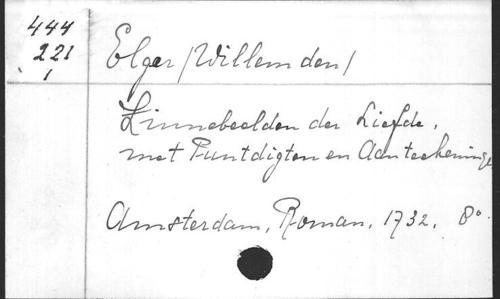 444
221
1
Elger /Willem den/
Zinnebeelden der Liefde,
met Puntdigten en Aanteekeninge
Amsterdam, Roman, 1732, 8º